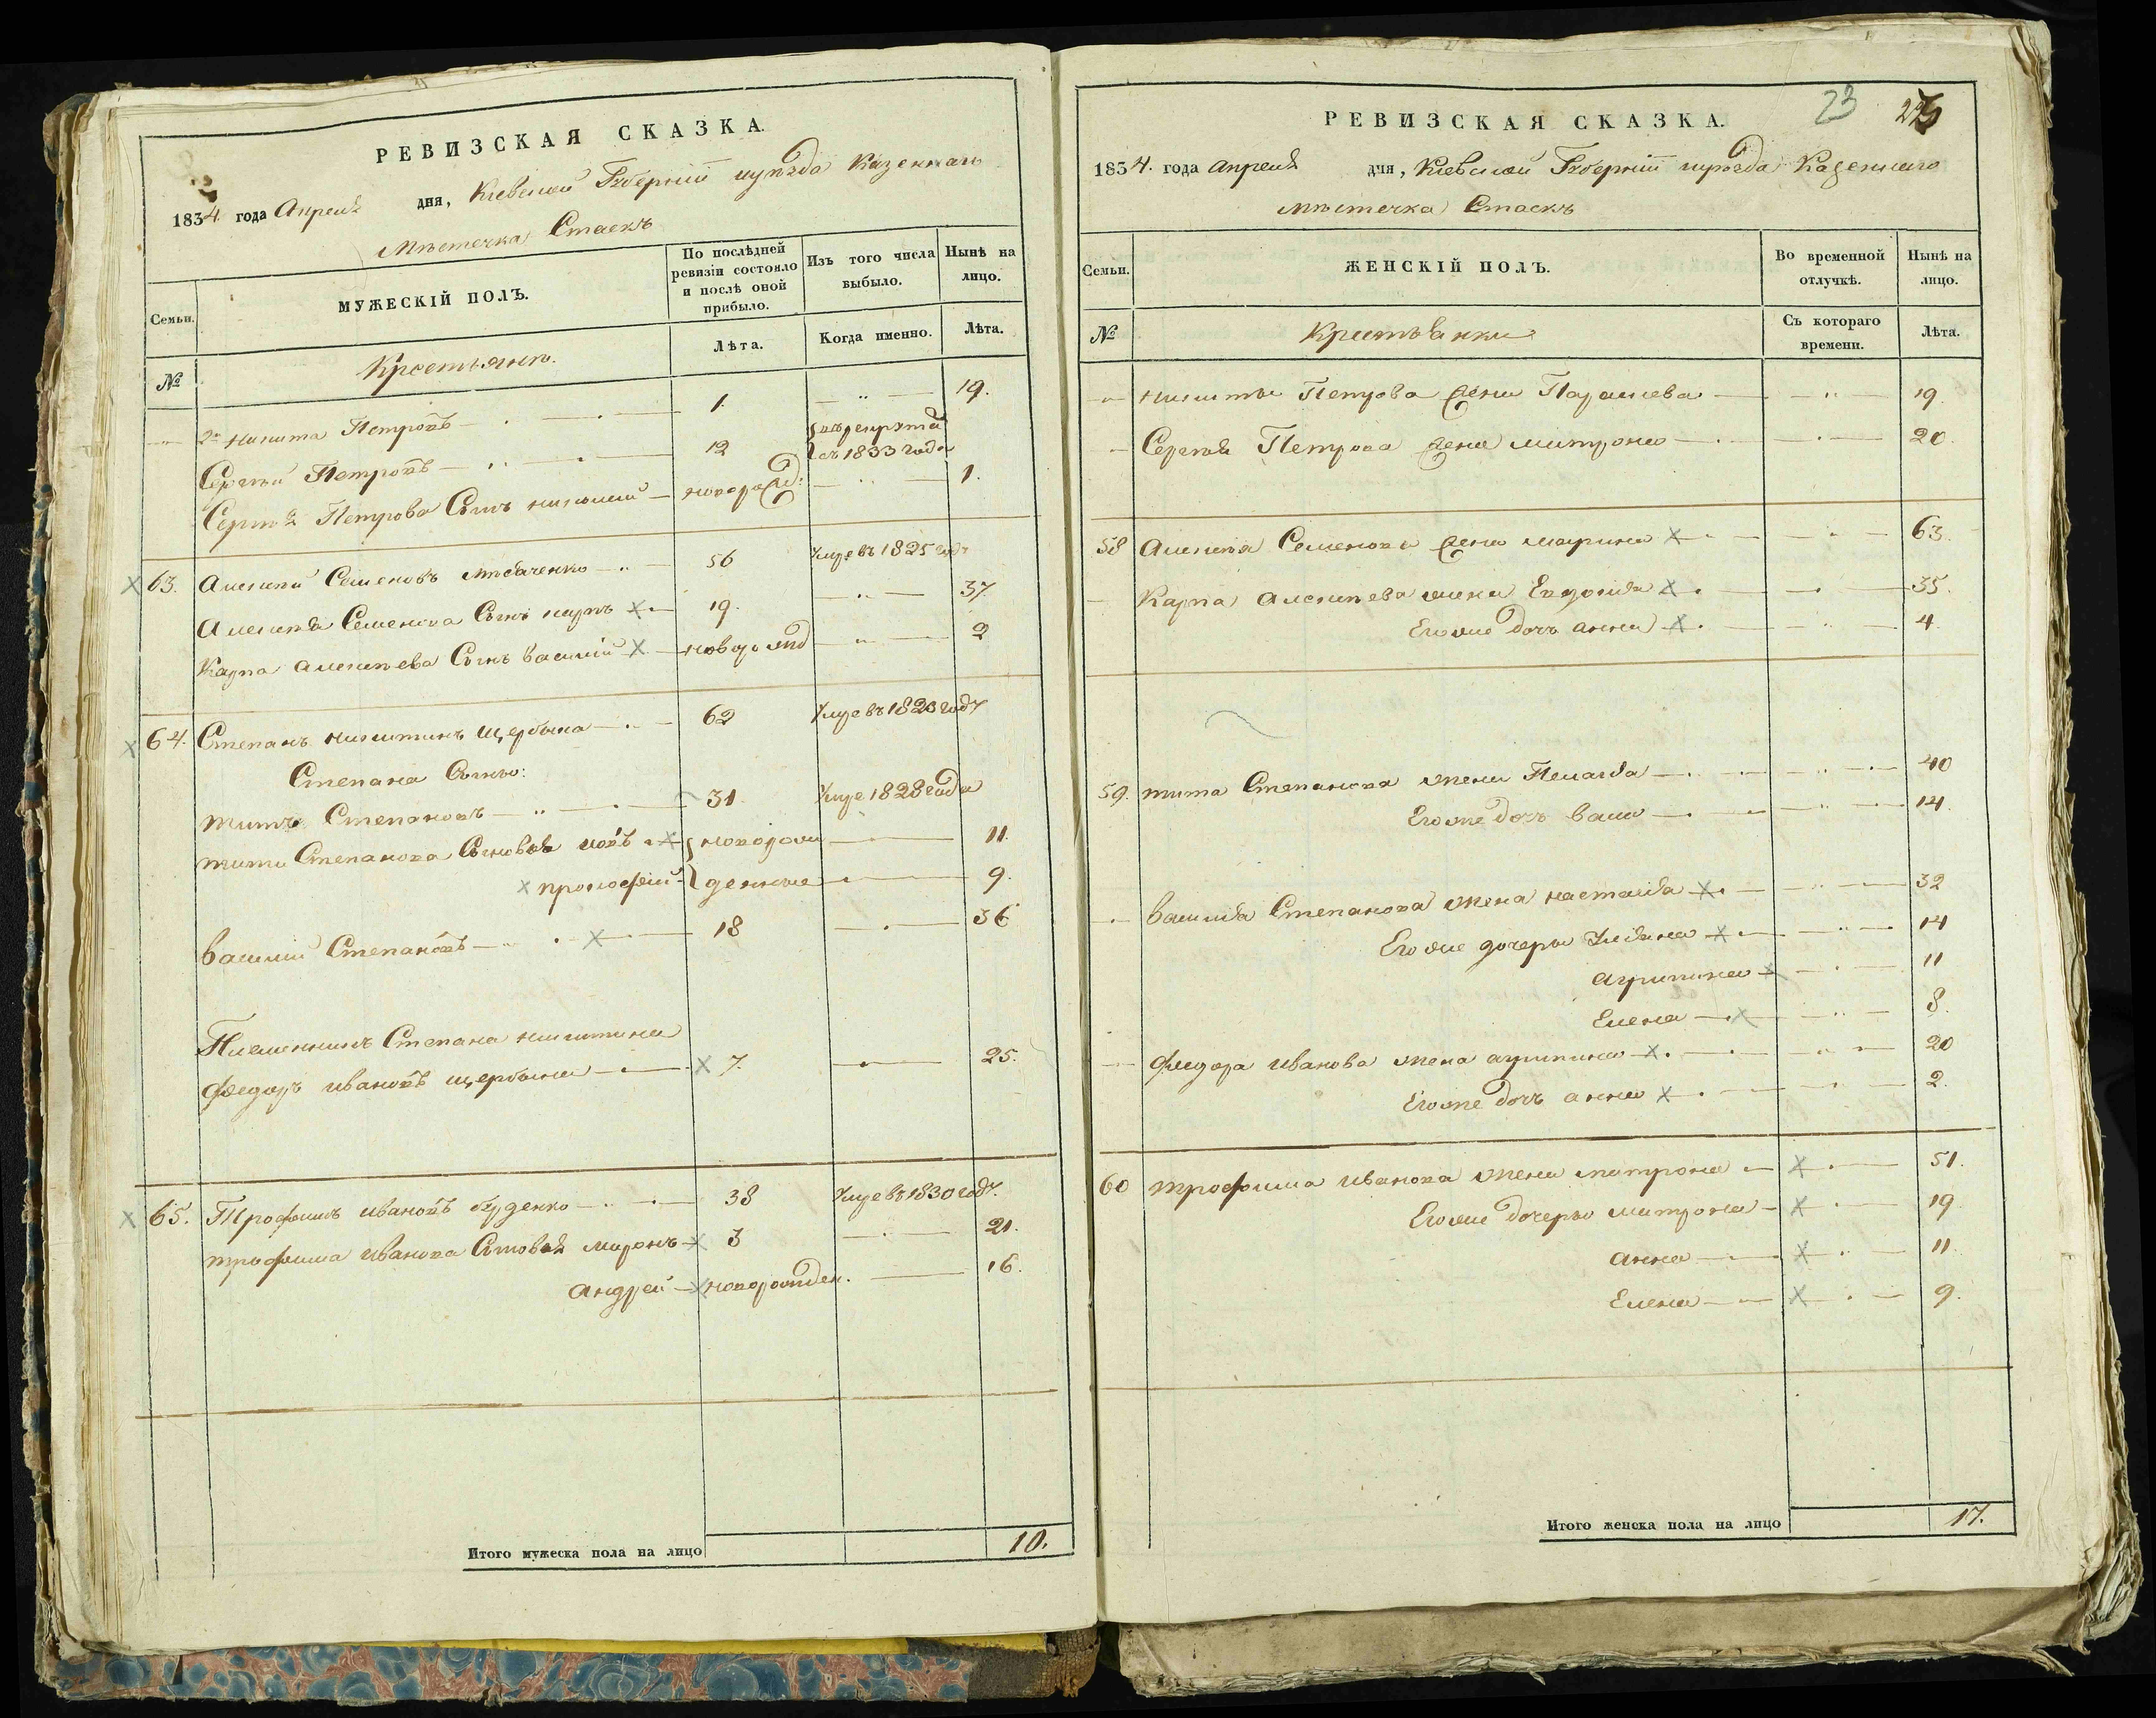 РЕВИЗСКАЯ СКАЗКА.
1834 года Апреля дня, Кіевской Губерніи уѣзда Казеннаго
Мѣстечка Стаекъ
Семьи.
МУЖЕСКІЙ ПОЛЪ.
По послѣдней ревизіи состояло и послѣ оной прибыло.
Изъ того числа выбыло.
Нынѣ на лицо.
№
Крестьяне.
Лѣта.
Когда именно.
Лѣта.
2й Никита Петровъ 1. 19.
Сергѣй Петровъ 12 въ рекруты съ 1833 года
Сергѣя Петрова Сынъ Николай новорожд: 1.
63. Алексѣй Семеновъ 56 Умре въ 1825 году
Алексѣя Семенова Сынъ Карпъ 19. 37
Карпа Алексѣева Сынъ Василій новорожд 2
64. Степанъ Никитинъ Щербина 62 Умре въ 1823 году
Степана Сыны:
Титъ Степановъ 31. Умре 1828 года
Тита Степанова Сыновья новорож 11.
Прокофій денные 9.
Василій Степановъ 18 36
Племянникъ Степана Никитина
Федоръ Ивановъ Щербина 7. 25.
65. Трофимъ Ивановъ Буденко 38 Умре въ 1830 году.
Трофима Иванова Сыновья Миронъ 3 21.
Андрей новорожден. 16.
Итого мужеска пола на лицо 10.
23
РЕВИЗСКАЯ СКАЗКА.
1834. года Апреля дня, Кіевской Губерніи уѣзда Казеннаго
Мѣстечка Стаекъ
Семьи.
ЖЕНСКІЙ ПОЛЪ.
Во временной отлучкѣ.
Нынѣ на лицо.
№
Крестьянки
Съ котораго времени.
Лѣта.
Никиты Петрова жена 19.
Сергѣя Петрова жена Митрона 20.
58 Алексѣя Семенова жена Марина 63.
Карпа Алексѣева жена Евдокія 35.
Его же дочь Анна 4.
59. Тита Степанова жена Пелагія 40
Его же дочь 14.
Василія Степанова жена Настасія 32
Его же дочери Уліяна 14
Агрипина 11
Елена 8.
Федора Иванова жена Агрипина 20
Его же дочь Анна 2.
60 Трофима Иванова жена Матрона 51.
Его же дочери Митрона 19.
Анна 11.
Елена 9.
Итого женска пола на лицо 17.